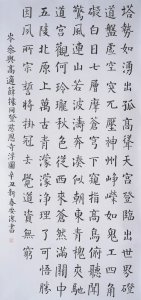 塔勢如湧出孤高聳天宮登臨出世界磴
道盤虛空突兀壓神州崢嶸如鬼工四角
礙白日七層摩蒼穹下窺指高鳥俯聽聞
驚風連山若波濤奔湊似朝東青槐夾馳
道宮觀何玲瓏秋色從西來蒼然滿關中
五陵北原上萬古青濛濛淨理了可悟勝
因夙所宗誓將掛冠去覺道資無窮
岑參與高適薛據同登慈恩寺浮圖辛丑新春書